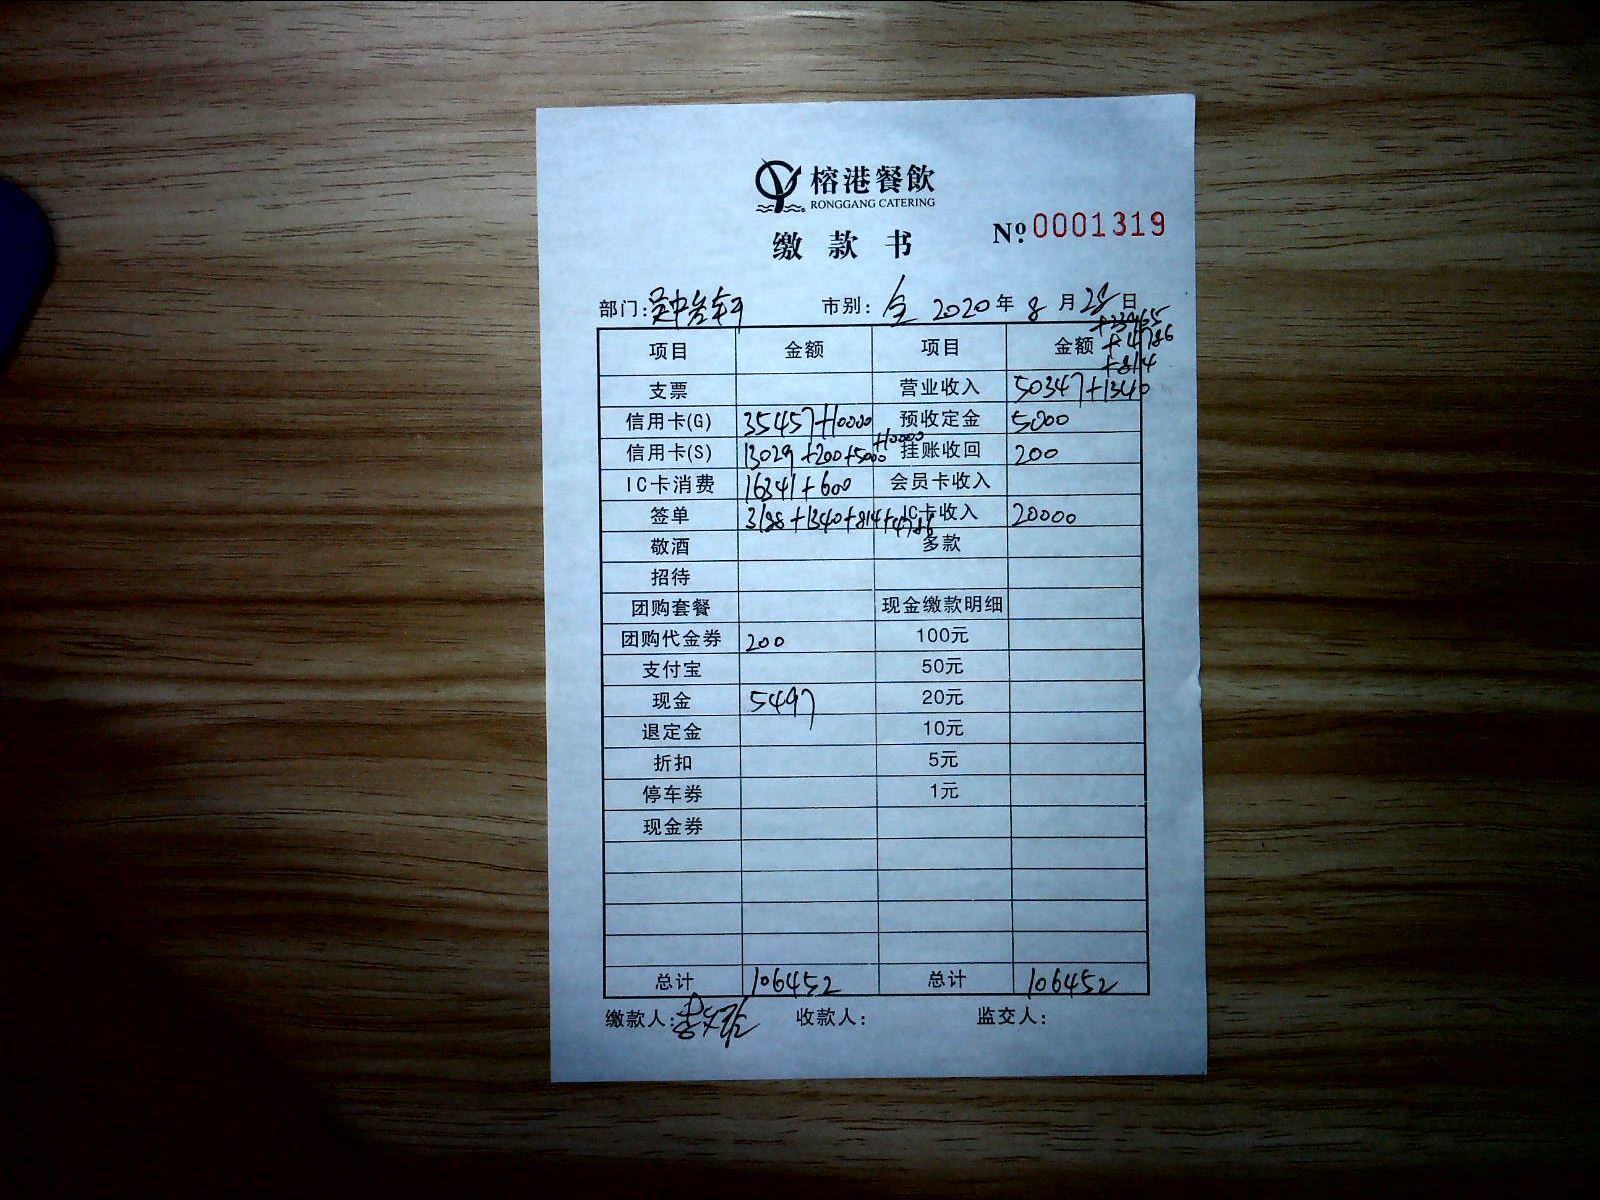 榕港餐飲
RONGGANG CATERING
缴款书 Nº 0001319
部门: 市别: 全 2020年 8月28日
+23965
项目 金额 项目 金额 +4786
+814
支票 营业收入 50347+1340
信用卡(G) 35457+10000 预收定金 5000
信用卡(S) 13029+200+5000+10000 挂账收回 200
IC卡消费 16341+600 会员卡收入
签单 3188+1340+814+4786 IC卡收入 20000
敬酒 多款
招待
团购套餐 现金缴款明细
团购代金券 200 100元
支付宝 50元
现金 5497 20元
退定金 10元
折扣 5元
停车券 1元
现金券
总计 106452 总计 106452
缴款人: 收款人: 监交人: